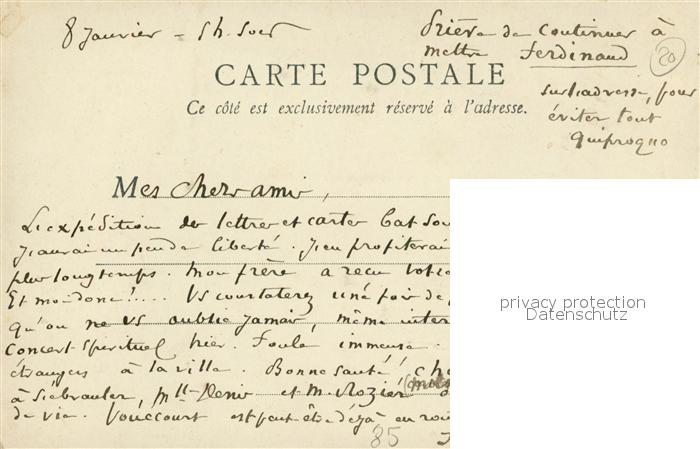 8 Janvier - 5h. Soir
Prière de continuer à
mettre Ferdinand
20
CARTE POSTALE
sur l'adresse, pour
Ce côté est exclusivement réservé à l'adresse.
éviter tout
quiproquo
Mes chers amis,
L'expédition des lettres et cartes bat son
J'aurai un peu de liberté. J'en profiterai
plus longtemps. Mon frère a reçu votre
Et moi donc!.... Vs constaterez une fois de
qu'on ne vs oublie jamais, même
Concert spirituel hier. Foule immense.
étrangers à la ville. Bonne santé!
à Siébrauler, Mlle Denis et M. Rozier
de vie. Voucourt est peut-être déjà en
85
privacy protection
Datenschutz